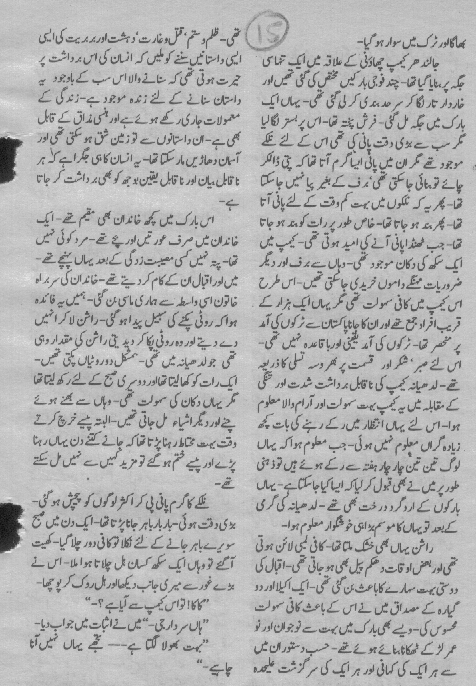 15
بھاگا اور ٹرک میں سوار ہو گیا۔
جالندھر کیمپ چھاؤنی کے علاقہ میں ایک تماسی
جگہ پر بنایا گیا تھا۔ چند فوجی بارکیں مختص کی گئی تھیں اور
خاردار تار لگا کر سرحد بندی کر لی گئی تھی۔ یہاں ایک
بارک میں جگہ مل گئی۔ فرش پختہ تھا۔ اس پر بستر لگا لیا
مگر سب سے بڑی دقت پانی کی تھی اس کے لئے نلکے
موجود تھے مگر ان میں پانی ایسا گرم آتا تھا کہ پتی ڈالکر
چائے تو بنائی جا سکتی تھی برف کے بغیر پیا نہیں جا سکتا
تھا۔ پھر یہ کہ نلکوں میں بہت کم وقت کے لئے پانی آتا
تھا۔ پھر بند ہو جاتا تھا۔ خاص طور پر رات کو بند ہو جاتا
تھا۔ جب ٹھنڈا پانی آنے کی امید ہوتی تھی۔ کیمپ میں
ایک سکھ کی دکان موجود تھی۔ وہاں سے برف اور دیگر
ضروریات مہنگے داموں خریدی جا سکتی تھیں۔ اس طرح
اس کیمپ میں کافی سہولت تھی مگر یہاں ایک ہزار کے
قریب افراد جمع تھے اور ان کا جانا پاکستان سے ٹرکوں کی آمد
پر منحصر تھا۔ ٹرکوں کی آمد یقینی اور باقاعدہ نہیں تھی۔
اس لئے صبر شکر اور قسمت پر بھروسہ تسلی کا ذریعہ
تھے۔ لدھیانہ کیمپ کی ناقابل برداشت شدت اور تنگی
کے مقابلہ میں یہ کیمپ بہت سہولت اور آرام والا معلوم
ہوا۔ اس لئے یہاں انتظار میں رکے رہنے کی بات کچھ
زیادہ گراں معلوم نہیں ہوئی۔ جب معلوم ہوا کہ یہاں
لوگ تین تین چار چار ہفتہ سے رکے ہوئے ہیں تو ذہنی
طور پر میں نے بھی قبول کر لیا کہ ایسا کیا جا سکتا ہے۔ یہاں
بارکوں کے اردگرد درخت بھی تھے۔ لدھیانہ کی گرمی
کے بعد تو یہاں کا موسم بڑا ہی خوشگوار معلوم ہوا۔
راشن یہاں بھی خشک ملتا تھا۔ کافی لمبی لائن ہوتی
تھی اور بعض اوقات دھکم پیل بھی ہو جاتی تھی۔ اقبال کی
دوستی بہت سہارے کا باعث بن گئی تھی۔ ایک اکیلا اور دو
گیارہ کے مصداق میں نے اس کے باعث کافی سہولت
محسوس کی۔ ویسے بھی بارک میں بہت سے نوجوان اور نو
عمر لڑکے ٹھکانا بنائے ہوئے تھے۔ حسب دستور ان میں
سے ہر ایک کی کہانی اور ہر ایک کی سرگزشت علیحدہ
تھی۔ ظلم و ستم، قتل و غارت، دہشت اور بربریت کی ایسی
ایسی داستانیں سننے کو ملیں کہ انسان کی اس برداشت پر
حیرت ہوتی تھی کہ سنانے والا اس سب کے باوجود یہ
داستان سنانے کے لئے زندہ موجود ہے۔ زندگی کے
معمولات جاری رکھے ہوئے ہے اور ہنسی مذاق کے قابل
بھی ہے۔ ان داستانوں سے تو زمین شق ہو سکتی تھی اور
آسمان دھاڑیں مار سکتا تھا۔ یہ انسان کا ہی جگر ہے کہ ہر
ناقابل بیان اور ناقابل یقین بوجھ کو بھی برداشت کر جاتا
ہے۔
اس بارک میں کچھ خاندان بھی مقیم تھے۔ ایک
خاندان میں صرف عورتیں اور بچے تھے۔ مرد کوئی نہیں
تھا۔ پتہ نہیں کسی مصیبت زدگی کے بعد یہاں پہنچے تھے۔
میں اور اقبال ان کے کام کر دیتے تھے۔ خاندان کی سربراہ
خاتون اسی واسطے سے ہماری ماسی بن گئی۔ ہمیں یہ فائدہ
ہوا کہ روٹی پکنے کی سبیل پیدا ہو گئی۔ راشن لا کر انہیں
دے دیتے اور وہ روٹی پکا کر دیدیتی راشن کی مقدار وہی
تھی جو لدھیانہ میں تھی۔ بمشکل دو روٹیاں پکتی تھیں۔
ایک رات کو کھا لیتا تھا اور دوسری صبح کے لئے رکھ لیتا تھا
مگر یہاں دکان کی سہولت تھی۔ وہاں سے بھنے ہوئے
چنے اور دیگر اشیاء مل جاتی تھیں۔ البتہ پیسے خرچ کرتے
وقت بہت محتاط رہنا پڑتا تھا کہ جانے کتنے دن یہاں رہنا
پڑے اور پیسے ختم ہو گئے تو مزید کہیں سے نہیں مل سکتے
تھے۔
نلکے کا گرم پانی پی کر اکثر لوگوں کو پیچش ہو گئی۔
بڑی دقت ہوئی۔ بار بار باہر جانا پڑتا تھا۔ ایک دن میں صبح
سویرے باہر جانے کے لئے نکلا تو کافی دور چلا گیا۔ کھیت
آ گئے تو وہاں ایک سکھ کسان ہل چلاتا ہوا ملا۔ اس نے
بڑے غور سے میری جانب دیکھا اور ہل روک کر پوچھا۔
"کاکا! تو اس کیمپ سے آیا ہے؟۔"
"ہاں سردار جی۔" میں نے اثبات میں جواب دیا۔
"بہت بھولا لگتا ہے ۔۔۔ تجھے یہاں نہیں آنا
چاہیے۔"